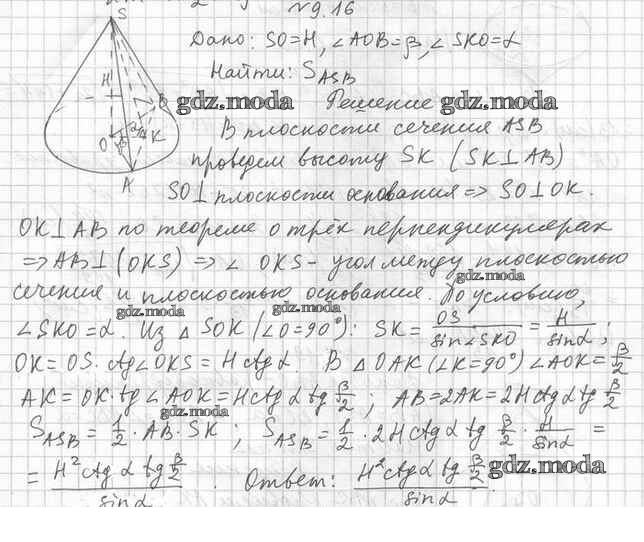 №9.16
Дано: SO=H, ∠AOB=β, ∠SKO=α
Найти: S_ASB
gdz.moda Решение gdz.moda
В плоскости сечения ASB
проведем высоту SK (SK⊥AB)
SO⊥плоскости основания ⇒ SO⊥OK.
OK⊥AB по теореме о трёх перпендикулярах
⇒ AB⊥(OKS) ⇒ ∠ OKS - угол между плоскостью
gdz.moda
сечения и плоскостью основания. По условию,
gdz.moda gdz.moda
∠SKO=α. Из △ SOK (∠O=90°): SK = OS/sin∠SKO = H/sinα;
OK = OS·ctg∠OKS = H ctgα. В △ OAK (∠K=90°) ∠AOK = β/2
AK = OK·tg∠AOK = H ctgα tg β/2; AB=2AK=2H ctgα tg β/2
gdz.moda
S_ASB = 1/2 · AB · SK; S_ASB = 1/2 · 2H ctgα tg β/2 · H/sinα =
= H² ctgα tg β/2 / sinα. Ответ: H² ctgα tg β/2 / sinα. gdz.moda
S
H
O
β
α
K
B
A